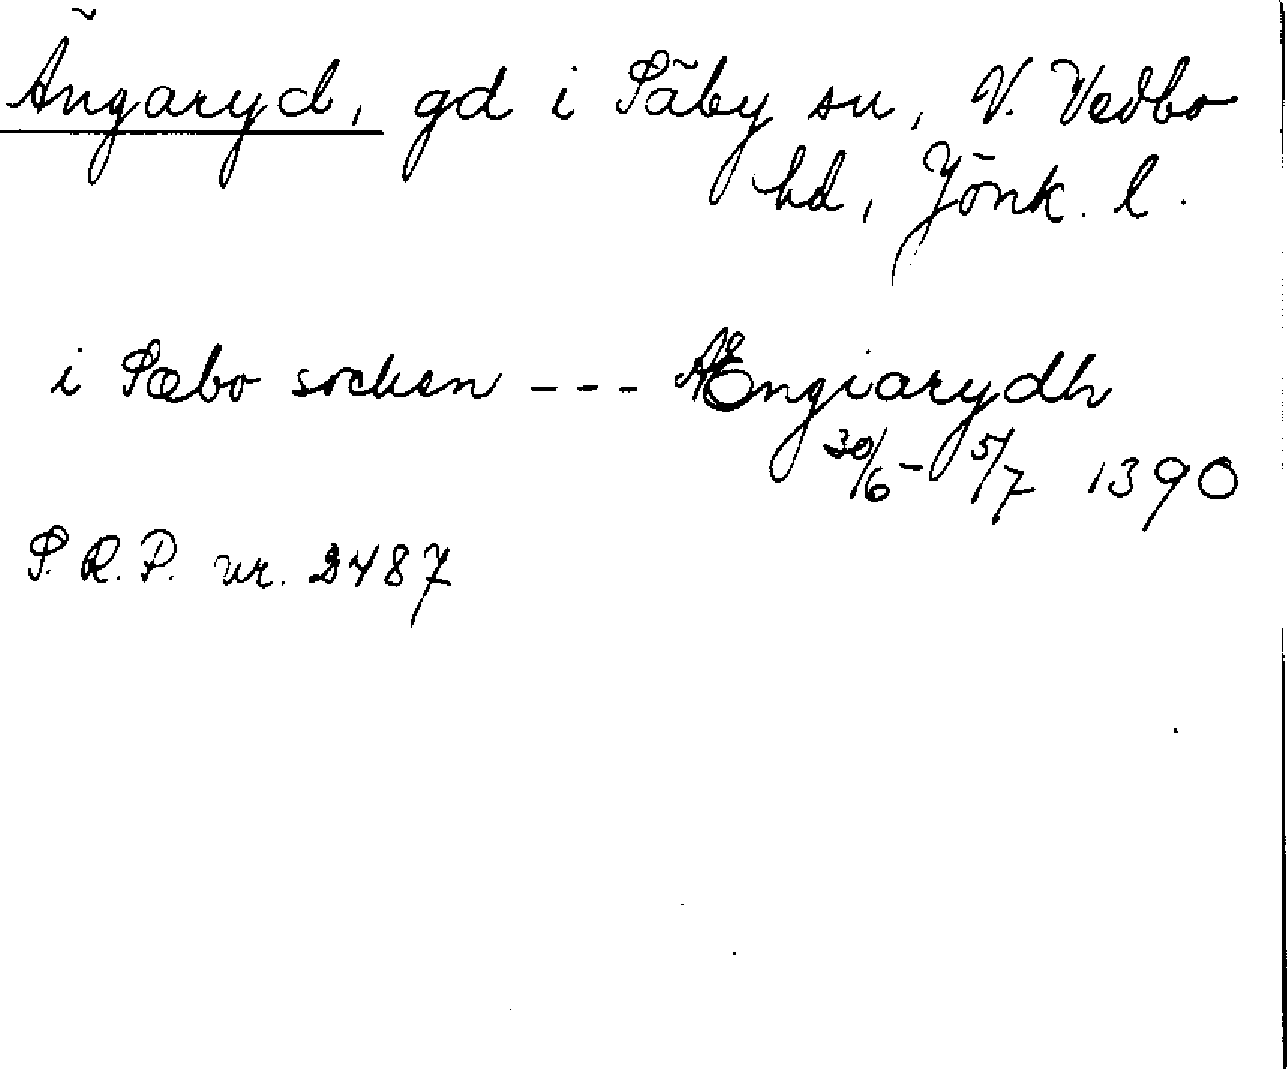 Ängaryd, gd i Säby sn, V. Vedbo
hd, Jönk. l.
i Sæbo socken --- Ængiarydh
30/6 - 5/7 1390
S.R.P. nr. 2487